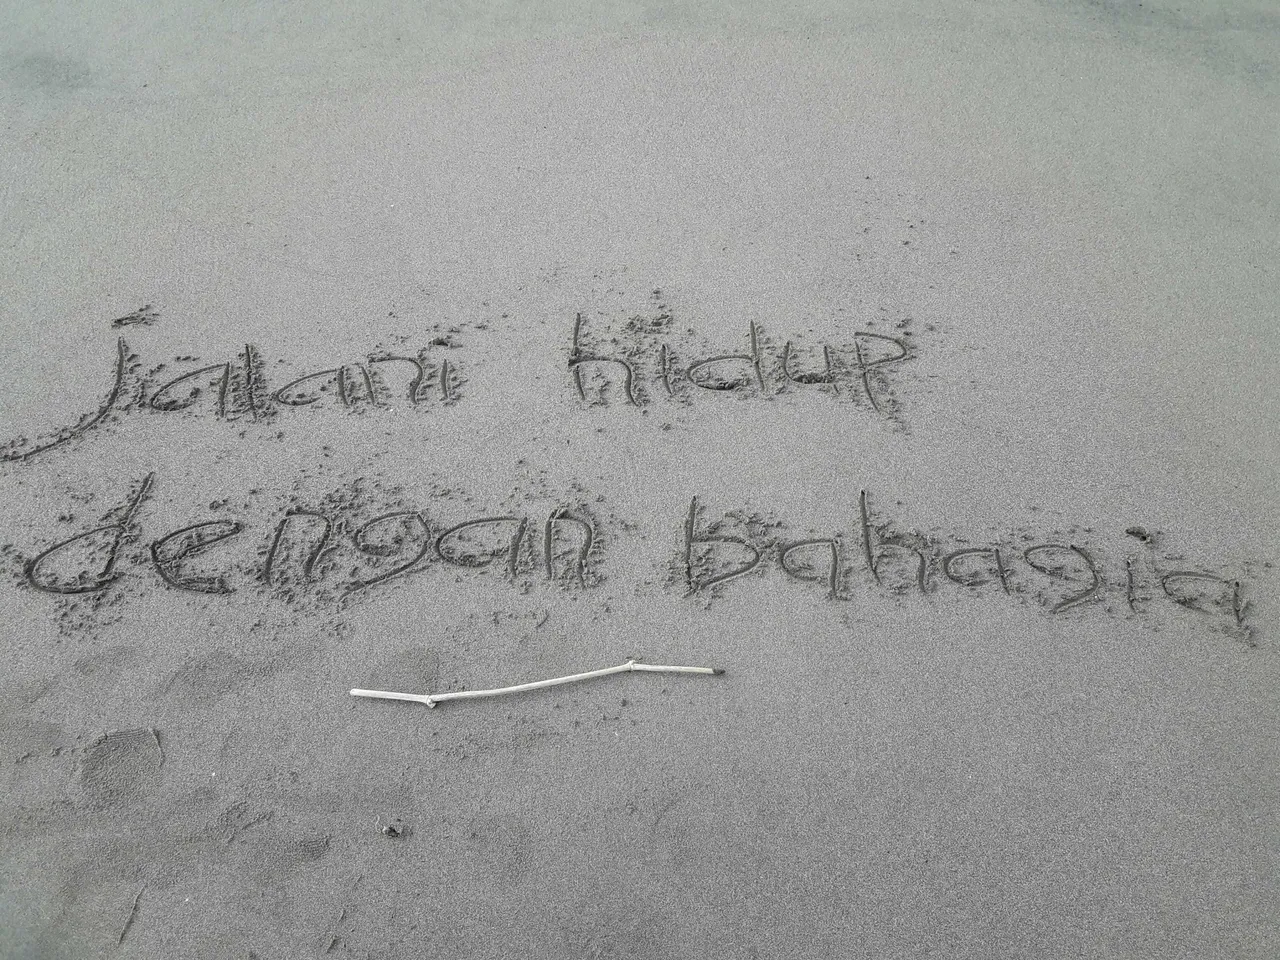 jalani hidup
dengan bahagia